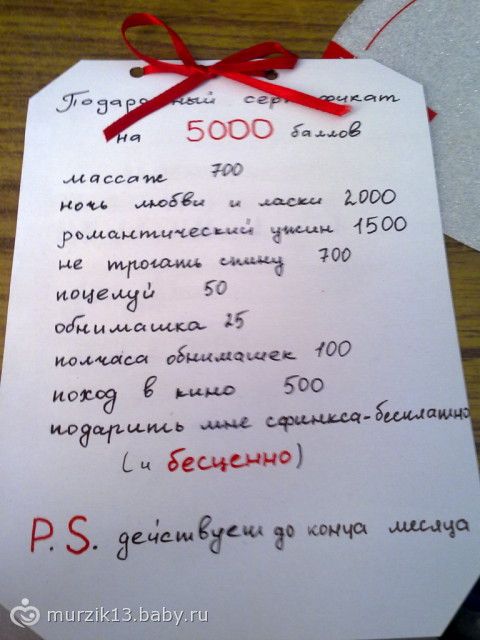 Подарочный сертификат
на 5000 баллов
массаж 700
ночь любви и ласки 2000
романтический ужин 1500
не трогать спину 700
поцелуй 50
обнимашка 25
полчаса обнимашек 100
поход в кино 500
подарить мне сфинкса-бесплатно
(и бесценно)
P.S. действует до конца месяца
murzik13.baby.ru